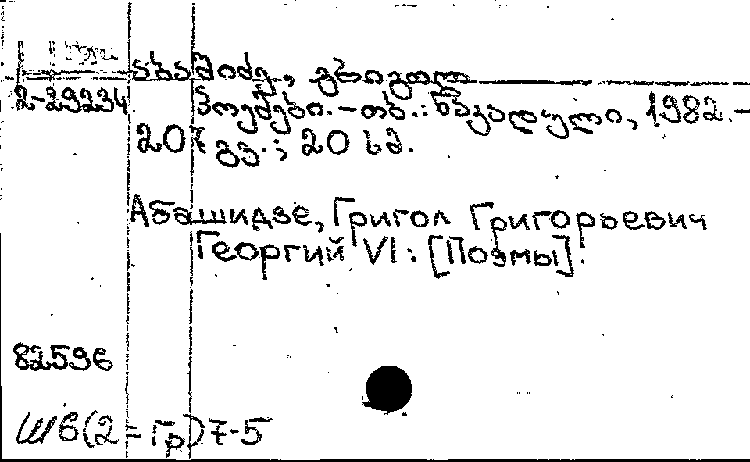 აბაშიძე, გრიგოლ
2-29234 პოემები. – თბ.: ნაკადული, 1982. –
207 გვ.; 20 სმ.
Абашидзе, Григол Григорьевич
Георгий VI: [Поэмы].
82596
Ш6(2=Гр)7-5